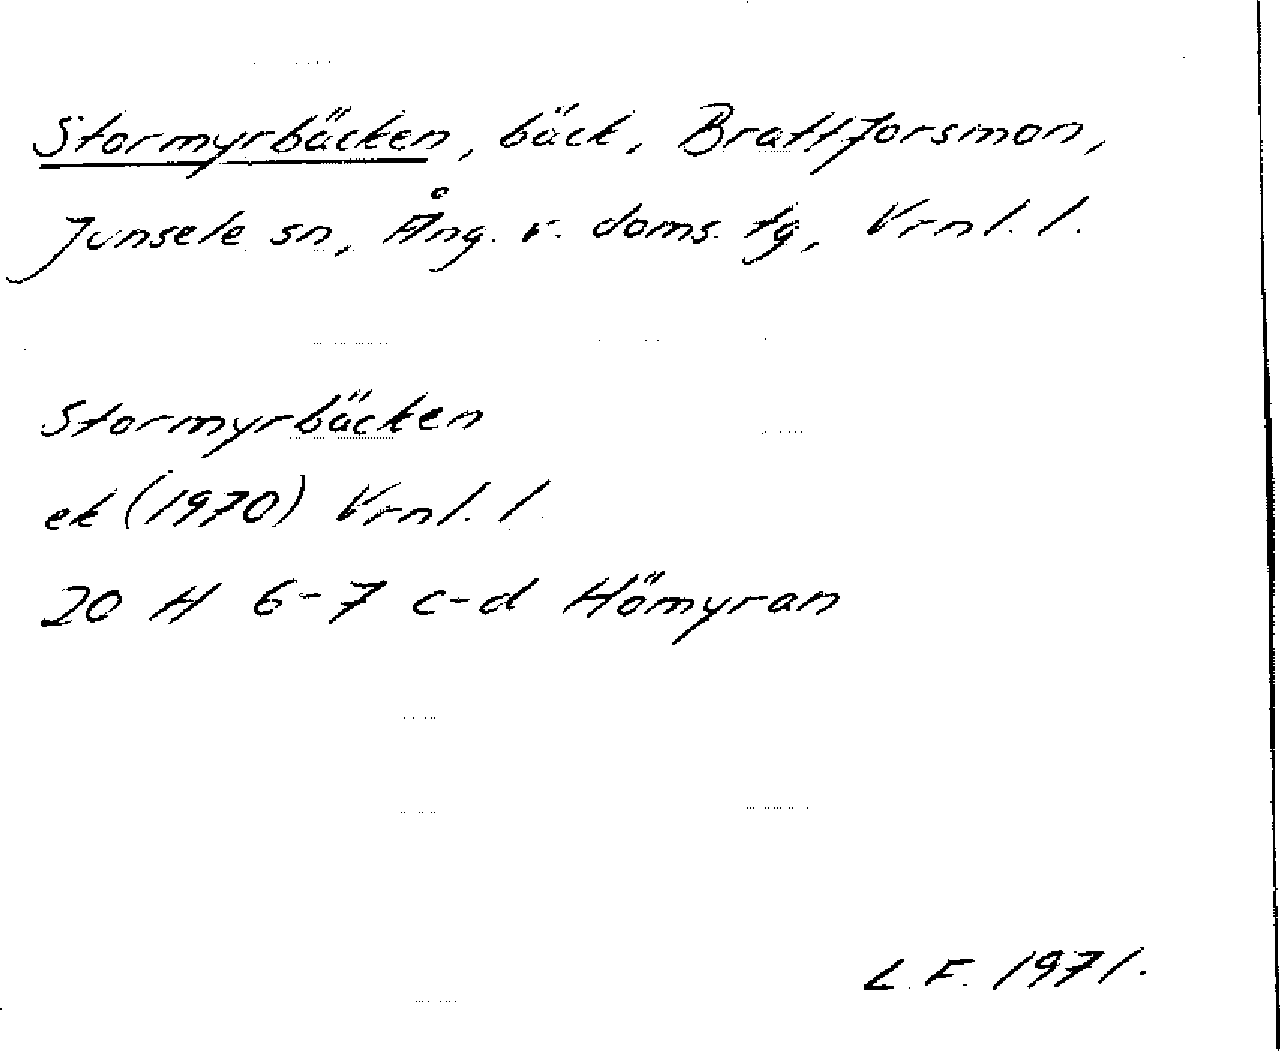 Stormyrbäcken, bäck, Brattforsmon,
Junsele sn, Ång. v. doms. tg, Vrnl. l.
Stormyrbäcken
ek (1970) Vrnl. l
20 H 6-7 c-d Hömyran
L. F. 1971.